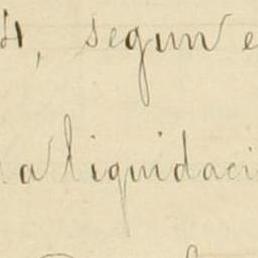 4, segun e
la liquidaci